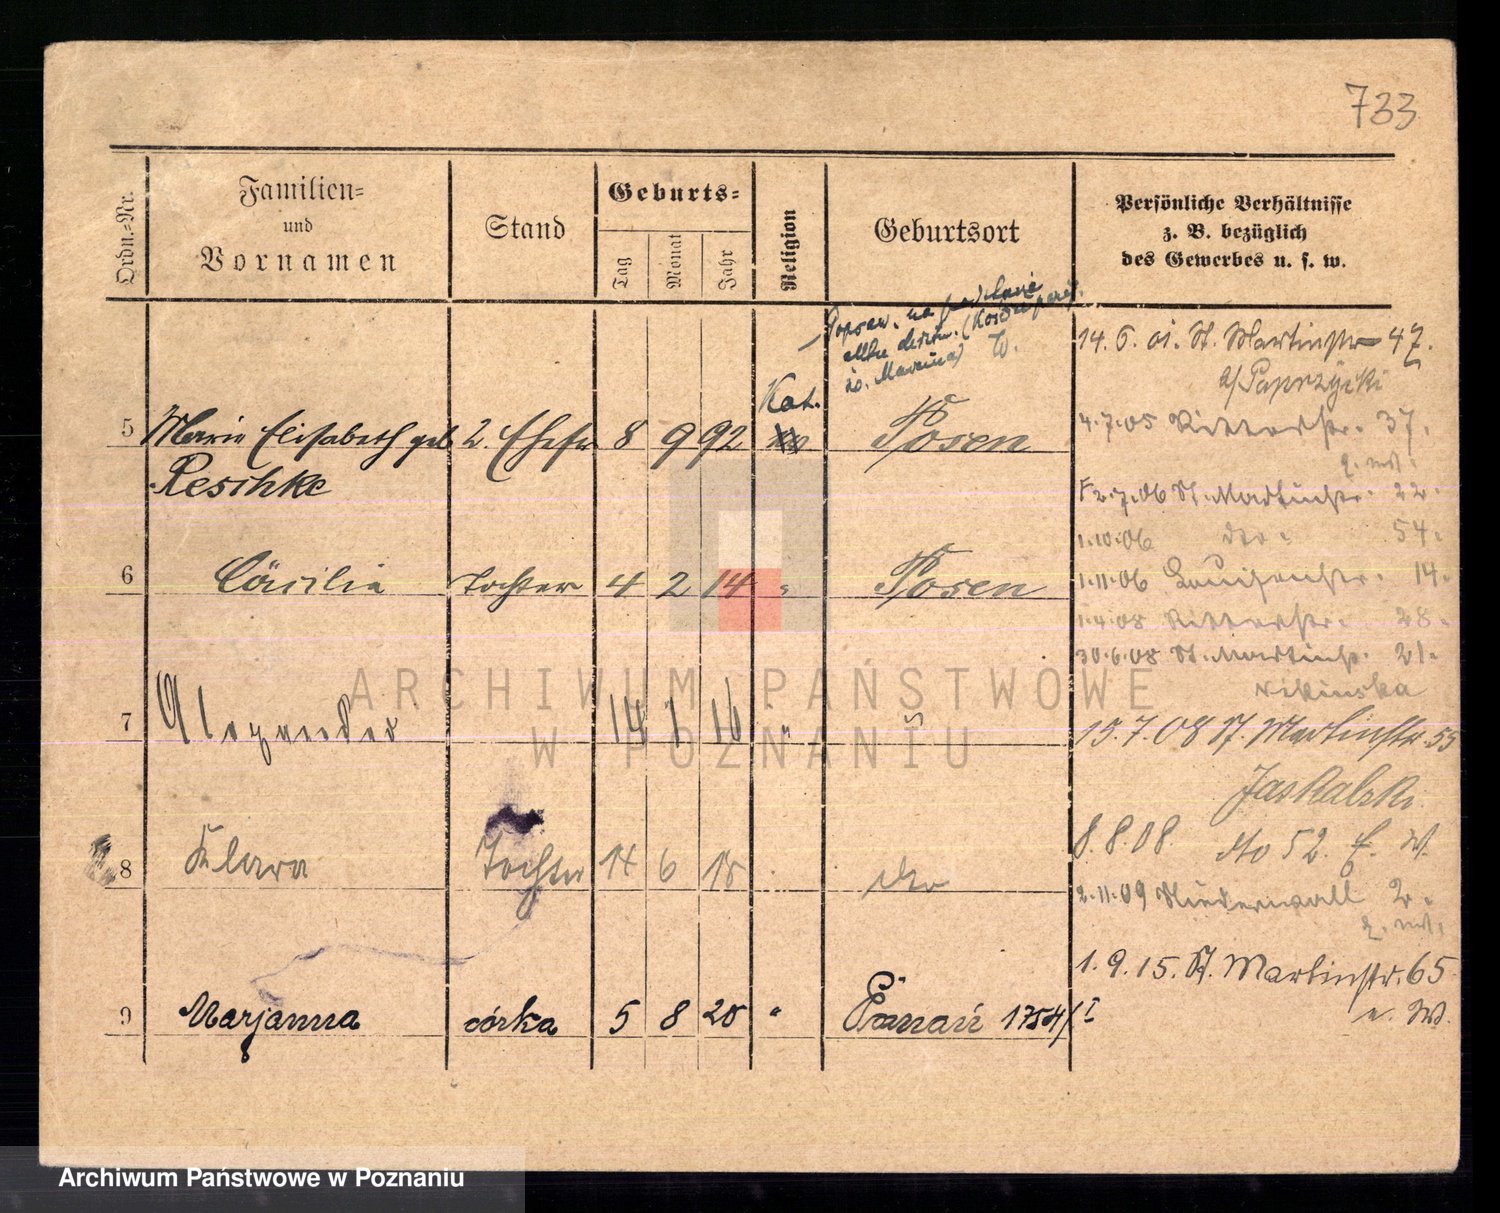 733
Ordn.-Nr.
Familien-
und
Vornamen
Stand
Geburts-
Tag
Monat
Jahr
Religion
Geburtsort
Persönliche Verhältnisse
z. B. bezüglich
des Gewerbes u. s. w.
14. 6. 01. St. Martinstr 47.
b/ Paprzycki
4.7.05 Ritterstr. 37.
2.7.06 St. Martinstr. 22.
1.10.06 dto 54.
1.11.06 Louisenstr. 14.
1.4.08 Ritterstr. 28.
30.6.08 St. Martinstr. 21.
15.7.08 St. Martinstr. 55
Jaskulski
8.8.08 dto 52. E. W.
2.11.09 Niederwall 2.
1.9.15. St. Martinstr. 65
n. W.
Kat.
5 Marie Elisabeth geb 2. Ehefr 8 9 92 Posen
Reschke
6 Cäcilie Tochter 4 2 14 " Posen
7 Alexander 14 1 16 " "
8 Klara Tochter 14 6 18 dto
9 Marjanna córka 5 8 20 " Poznań 1754/I
ARCHIWUM PAŃSTWOWE
W POZNANIU
Archiwum Państwowe w Poznaniu